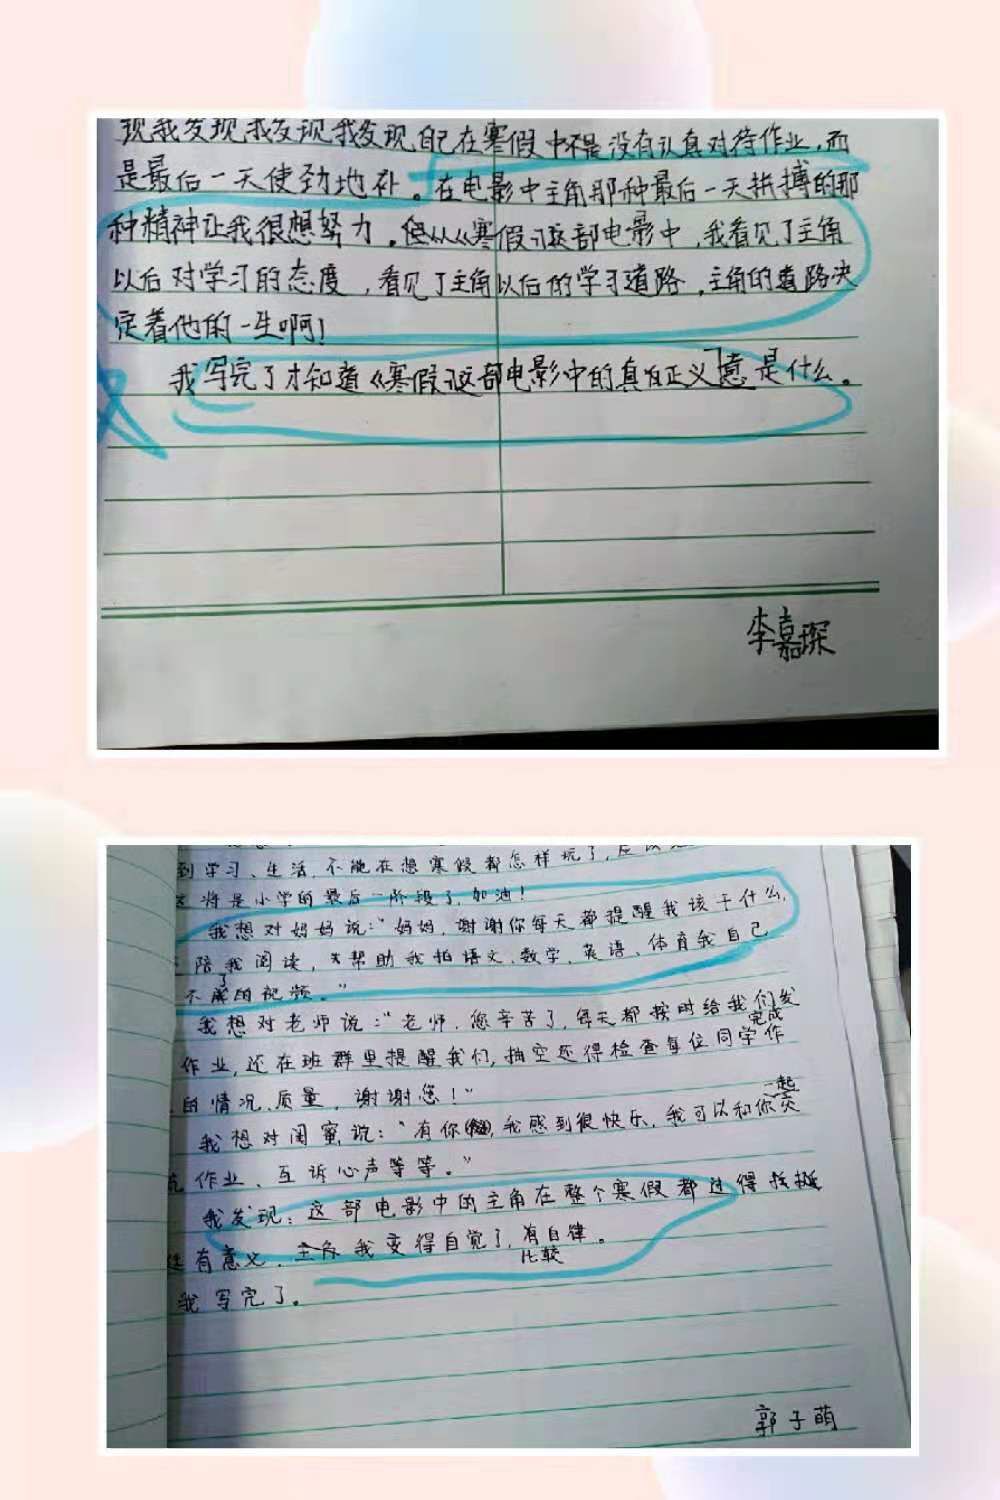 现我发现我发现我发现自己在寒假中不是没有认真对待作业,而
是最后一天使劲地补。在电影中主角那种最后一天拼搏的那
种精神让我很想努力。但从《寒假》这部电影中,我看见了主角
以后对学习的态度,看见了主角以后的学习道路。主角的道路决
定着他的一生啊!
我写完了才知道《寒假》这部电影中的真正意义是什么。
李嘉琛
到学习、生活,不能在想寒假都怎样玩了,
将是小学的最后一阶段了,加油!
我想对妈妈说:“妈妈,谢谢你每天都提醒我该干什么,
陪我阅读,帮助我拍语文、数学、英语、体育我自己
不了的视频。”
我想对老师说:“老师,您辛苦了,每天都按时给我们发
作业,还在班群里提醒我们,抽空还得检查每位同学完成作
的情况、质量,谢谢您!”
我想对闺蜜说:“有你,我感到很快乐,我可以和你一起
作业、互诉心声等等。”
我发现:这部电影中的主角在整个寒假都过得挺
有意义,我变得自觉了,比较有自律。
我写完了。
郭子萌